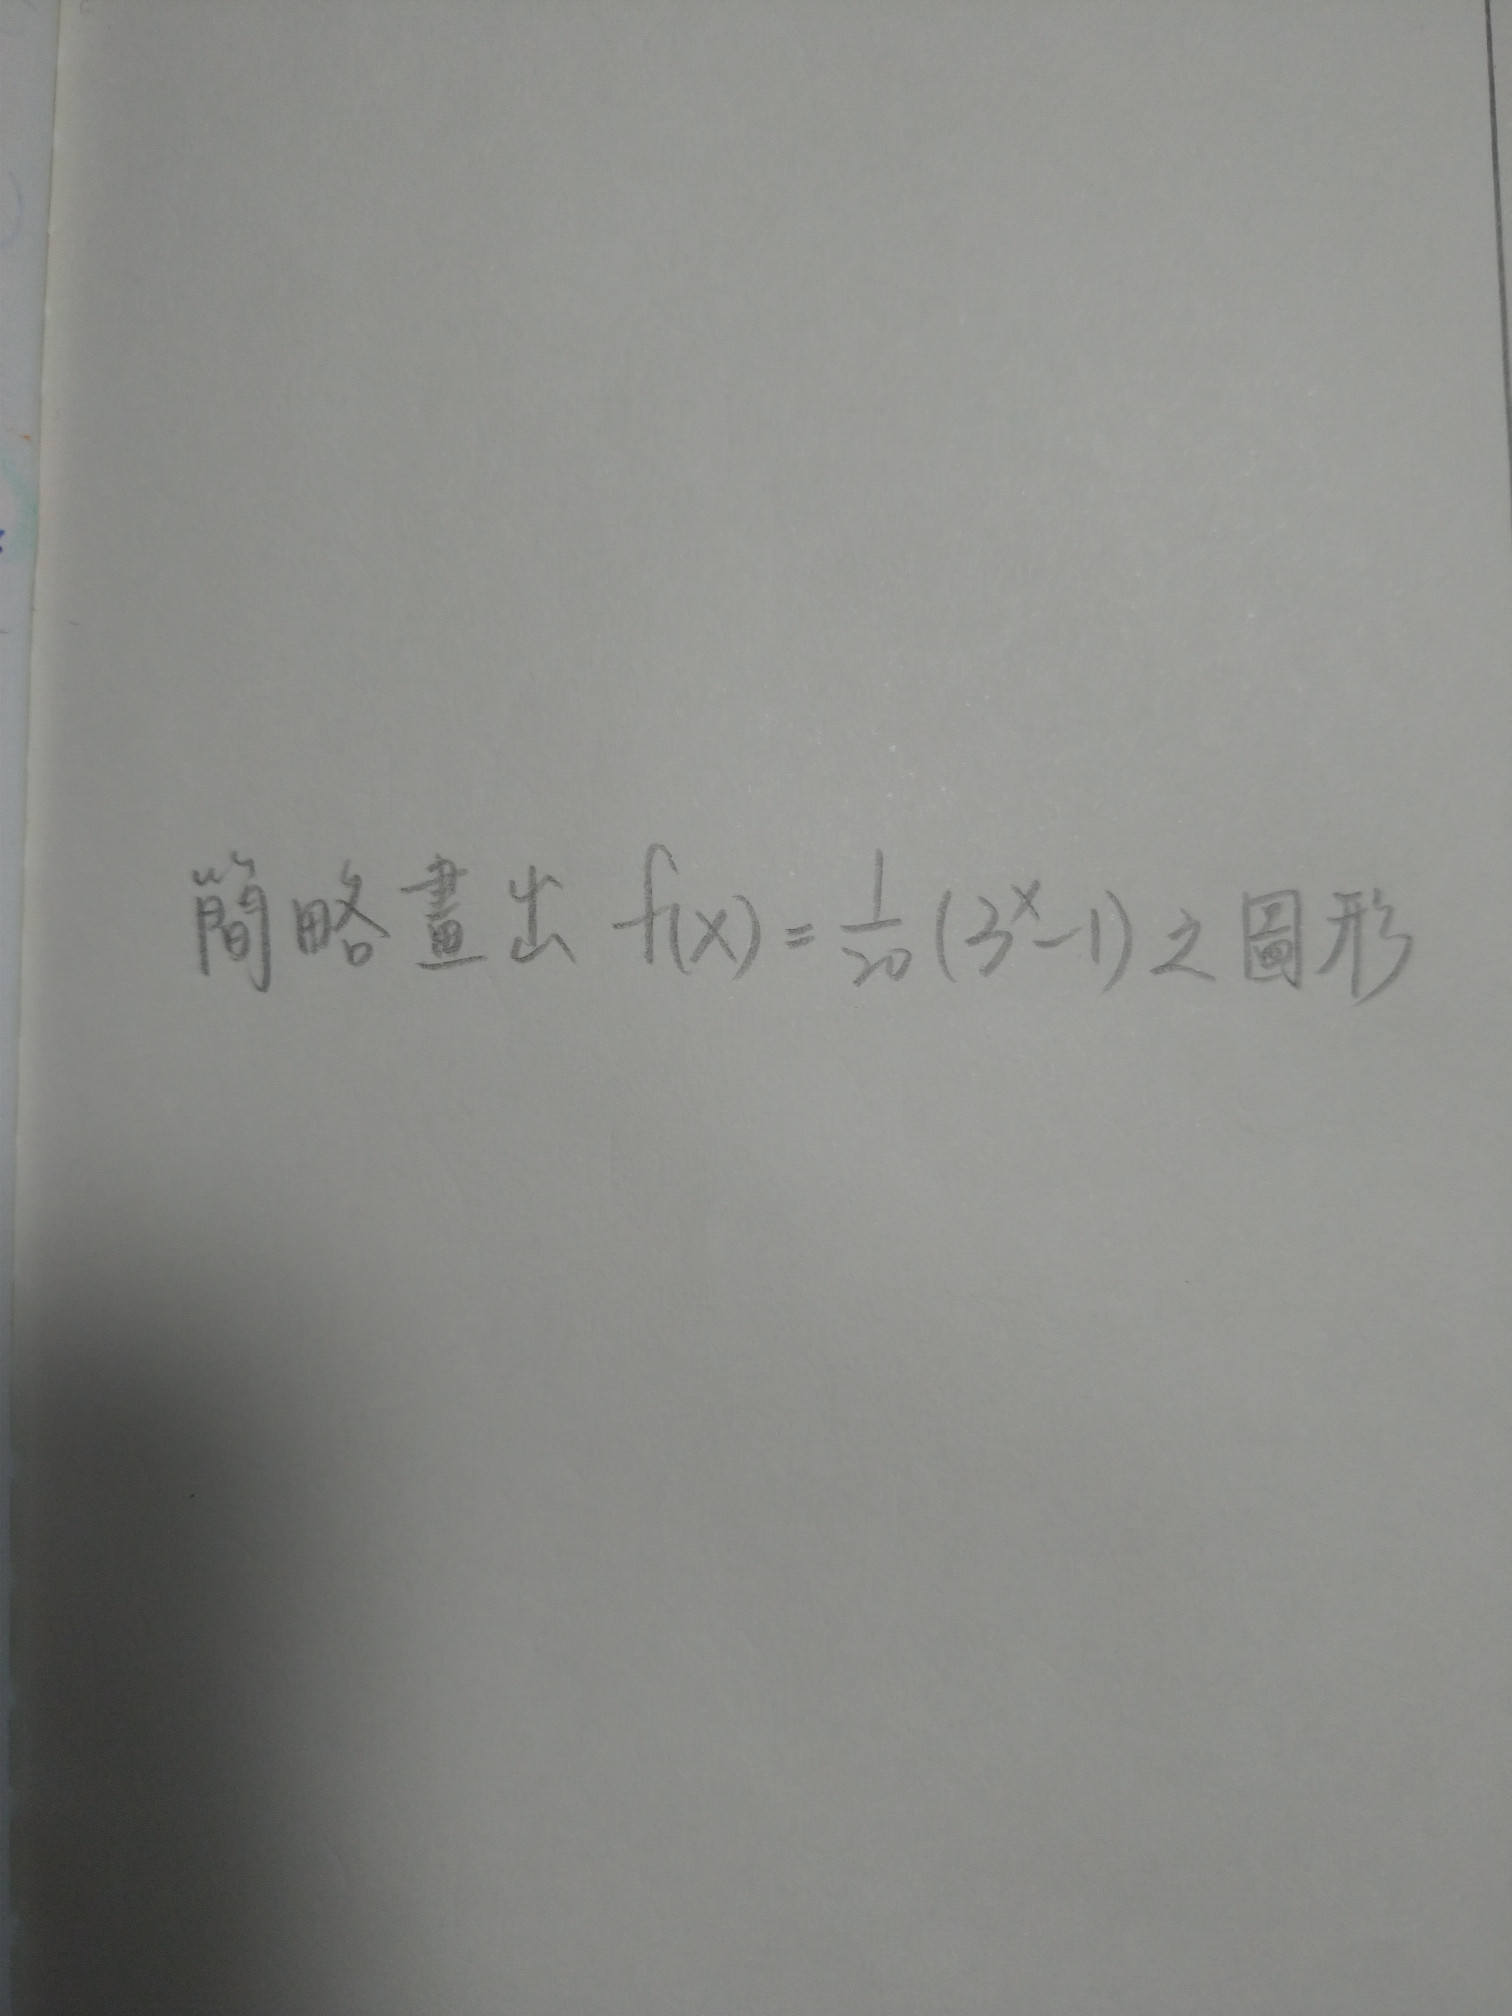 簡略畫出 f(x) = 1/20 (3^x - 1) 之圖形